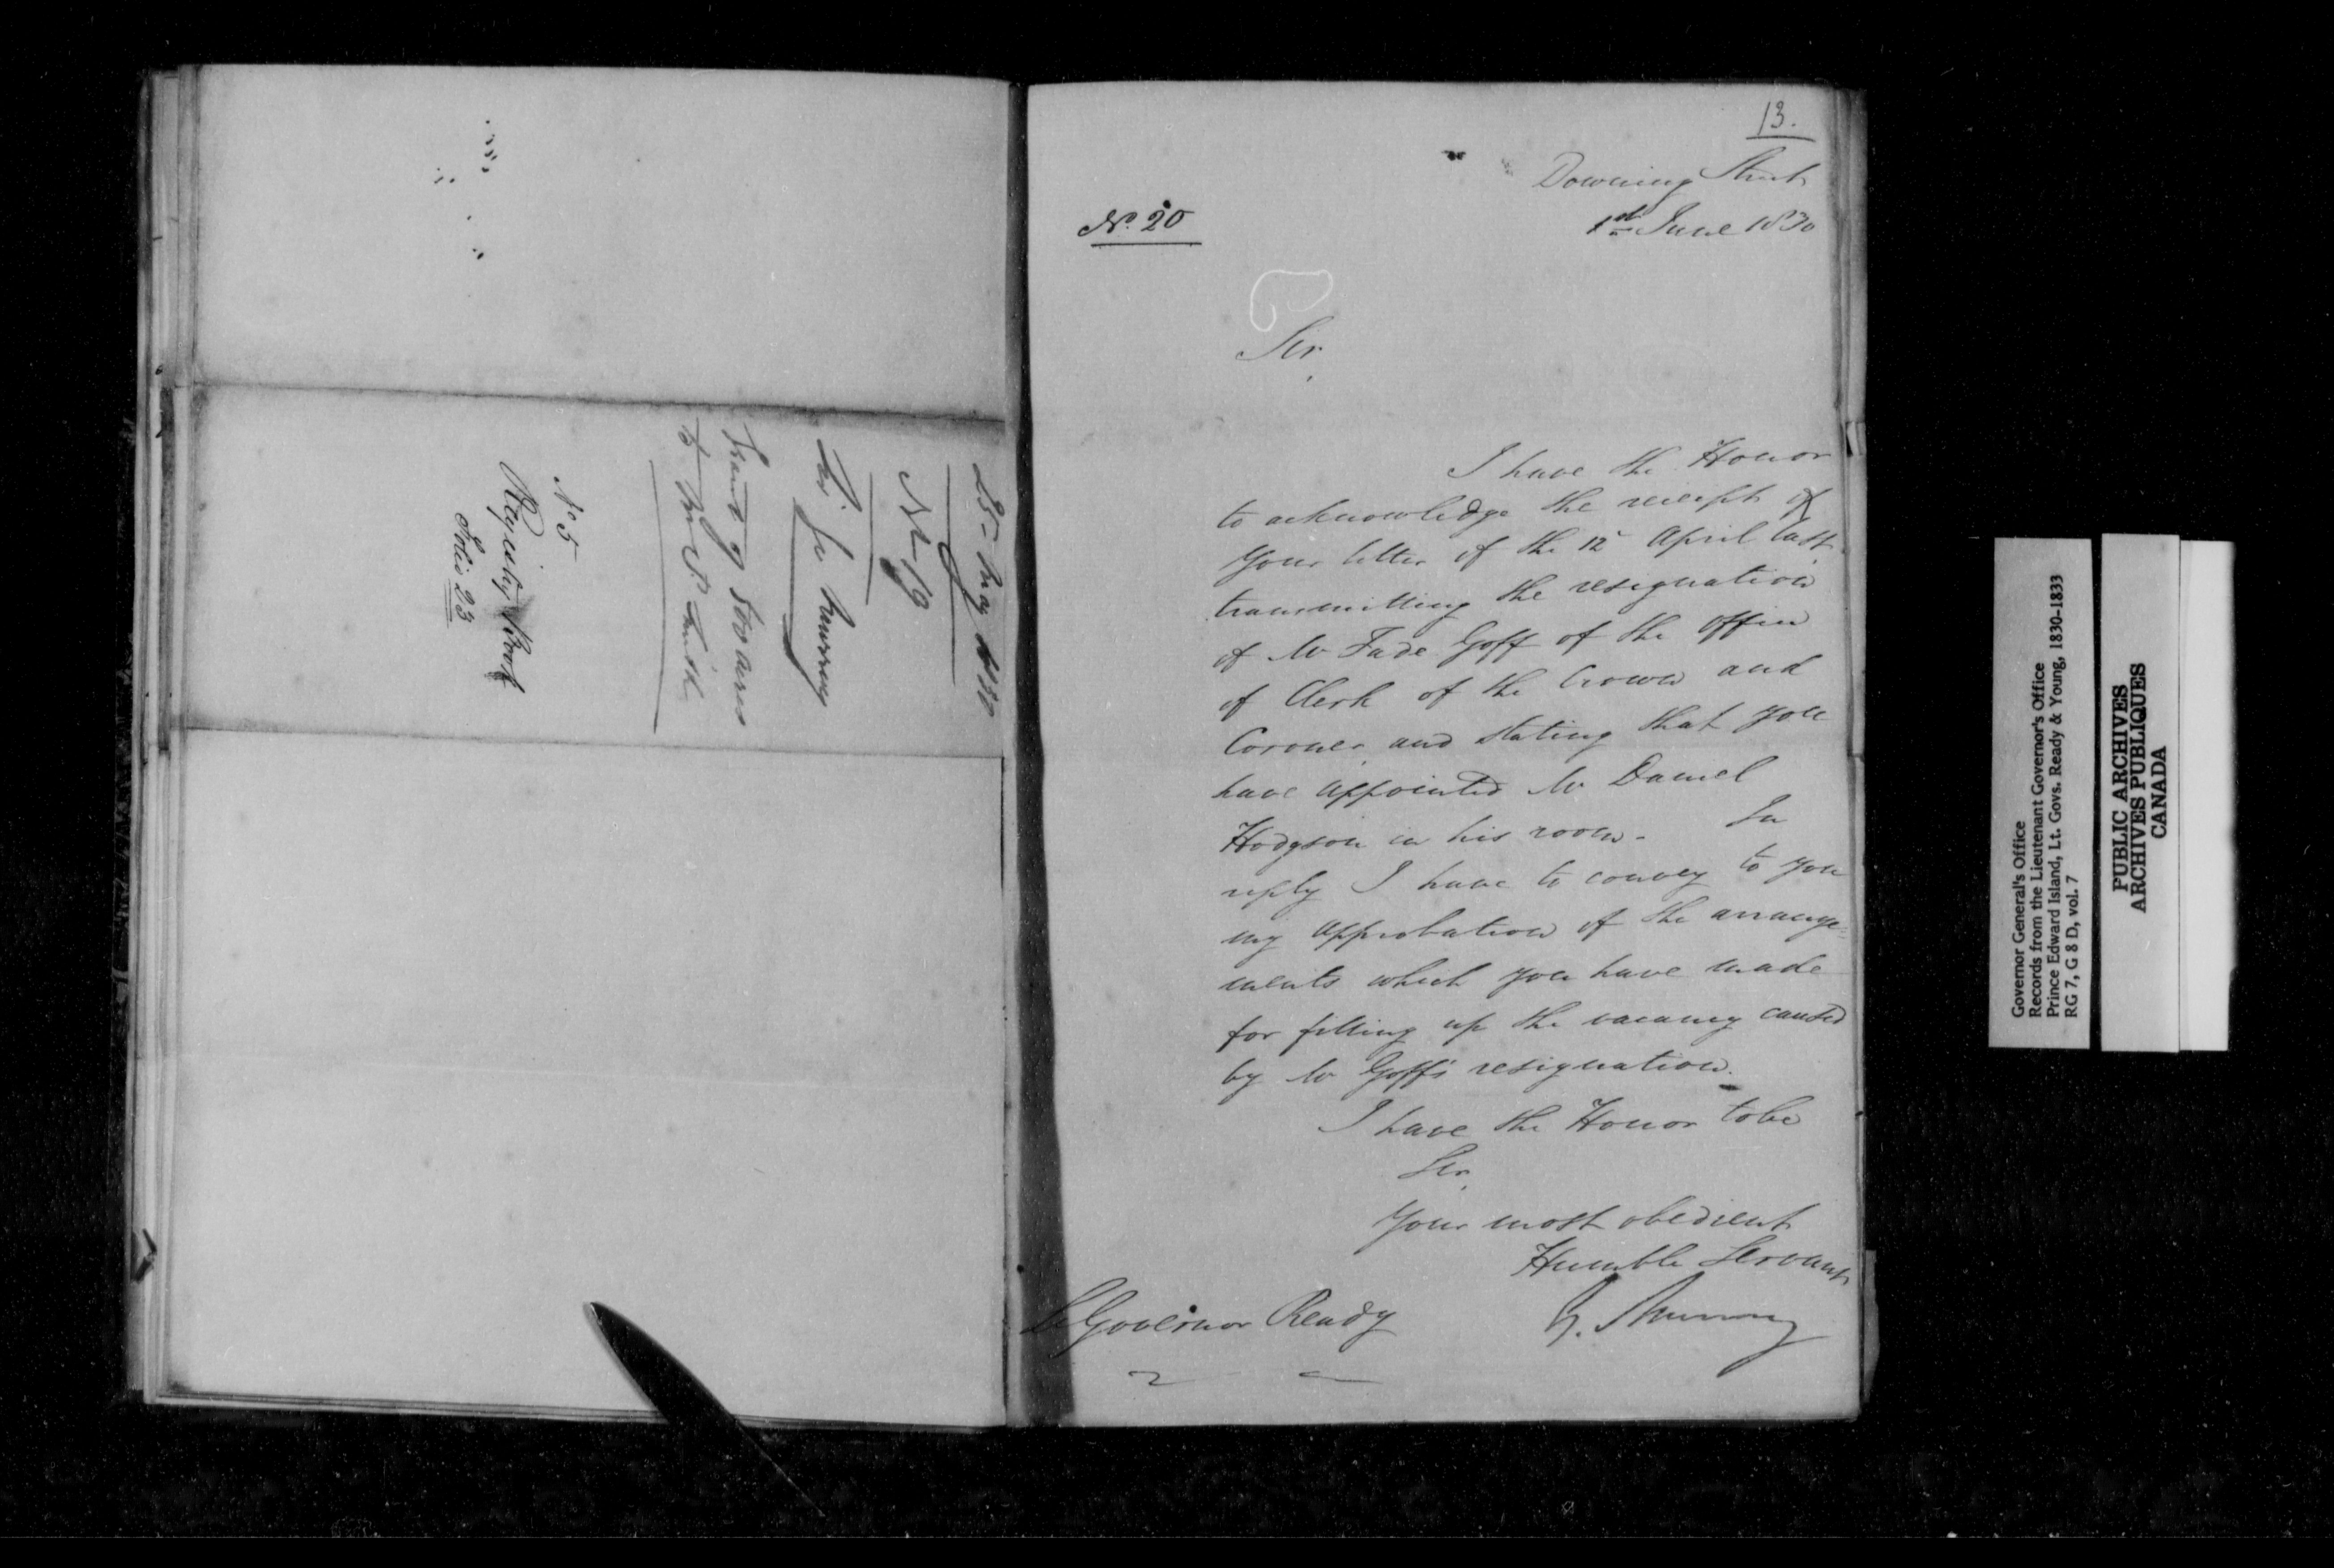 25 May 1830
No 19
Sir Geo Murray
Grant of 500 acres
to Mr S.
No 5
Book
Folio 23
13.
Downing Street
1st June 1830
No. 20
Sir,
I have the Honor
to acknowledge the receipt of
your letter of the 12 April last
transmitting the resignation
of Mr Fade Goff of the office
of Clerk of the Crown and
Coroner, and stating that you
have appointed Mr Daniel
Hodgson in his room. In
reply I have to convey to you
my approbation of the arrange=
ments which you have made
for filling up the vacancy caused
by Mr Goff's resignation.
I have the Honor to be
Sir,
Your most obedient
Humble Servant
G. Murray
Lt Governor Ready
Governor General's Office
Records from the Lieutenant Governor's Office
Prince Edward Island, Lt. Govs. Ready & Young, 1830-1833
RG 7, G 8 D, vol. 7
PUBLIC ARCHIVES
ARCHIVES PUBLIQUES
CANADA